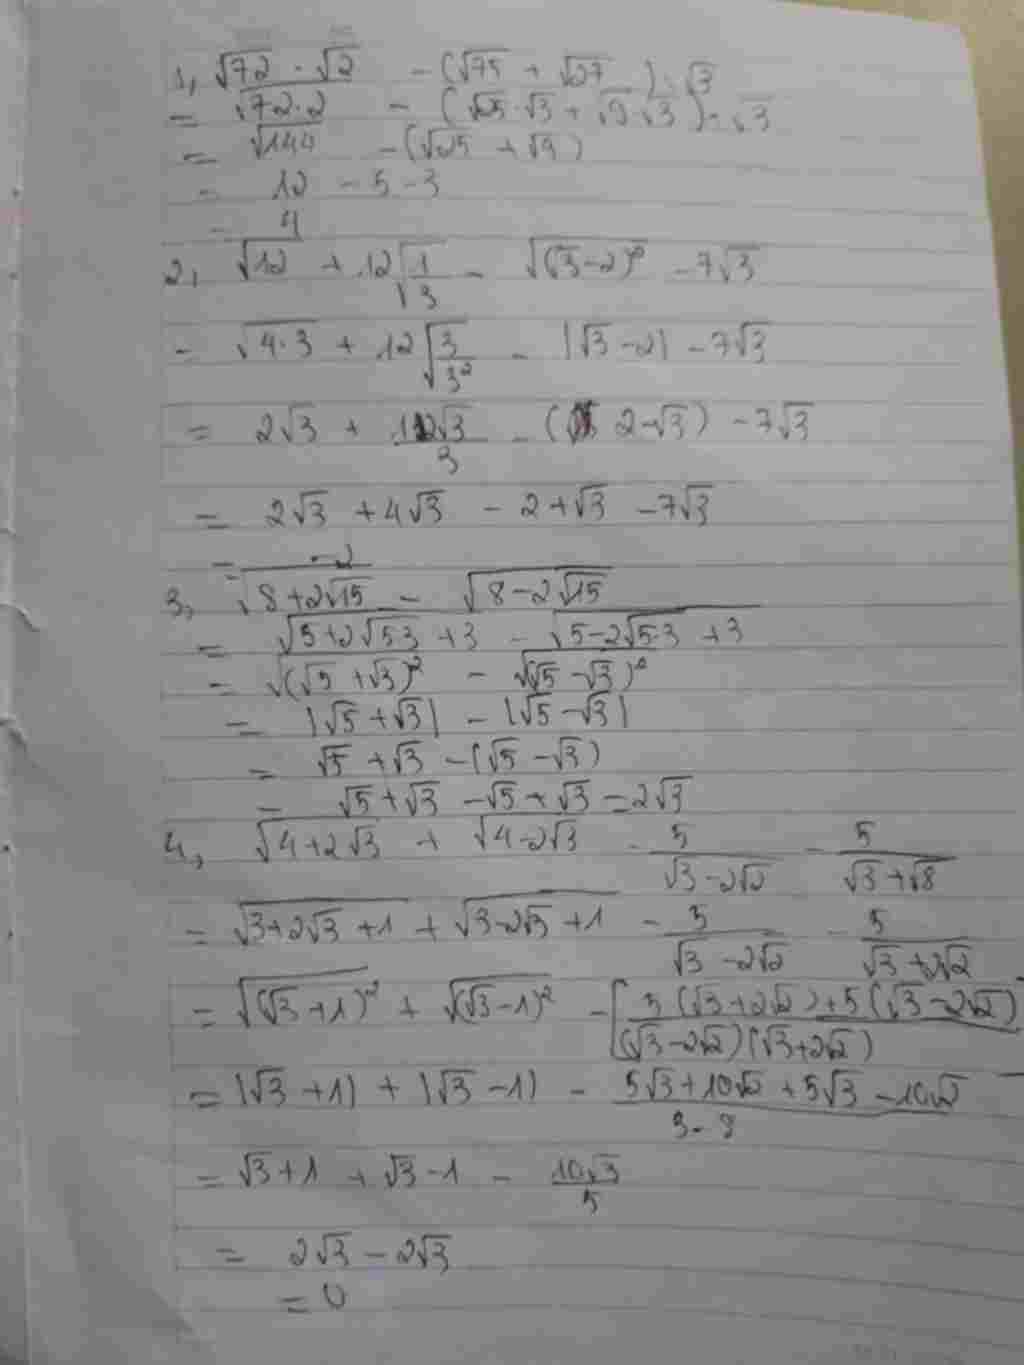 1, √72 · √2 - (√75 + √27) : √3
= √72·2 - (√25·√3 + √9·√3) : √3
= √144 - (√25 + √9)
= 12 - 5 - 3
= 4
2, √12 + 12√(1/3) - √((√3-2)²) - 7√3
= √4·3 + 12√(3/3²) - |√3-2| - 7√3
= 2√3 + 12√3/3 - (2-√3) - 7√3
= 2√3 + 4√3 - 2 + √3 - 7√3
= -2
3, √(8+2√15) - √(8-2√15)
= √(5+2√5·3 +3) - √(5-2√5·3 +3)
= √((√5+√3)²) - √((√5-√3)²)
= |√5+√3| - |√5-√3|
= √5 + √3 - (√5 - √3)
= √5 + √3 - √5 + √3 = 2√3
4, √(4+2√3) + √(4-2√3) - 5/(√3-2√2) - 5/(√3+√8)
= √(3+2√3+1) + √(3-2√3+1) - 5/(√3-2√2) - 5/(√3+2√2)
= √((√3+1)²) + √((√3-1)²) - [5(√3+2√2)+5(√3-2√2)/(√3-2√2)(√3+2√2)
= |√3+1| + |√3-1| - (5√3+10√2+5√3-10√2)/(3-8)
= √3+1 + √3-1 - 10√3/5
= 2√3 - 2√3
= 0